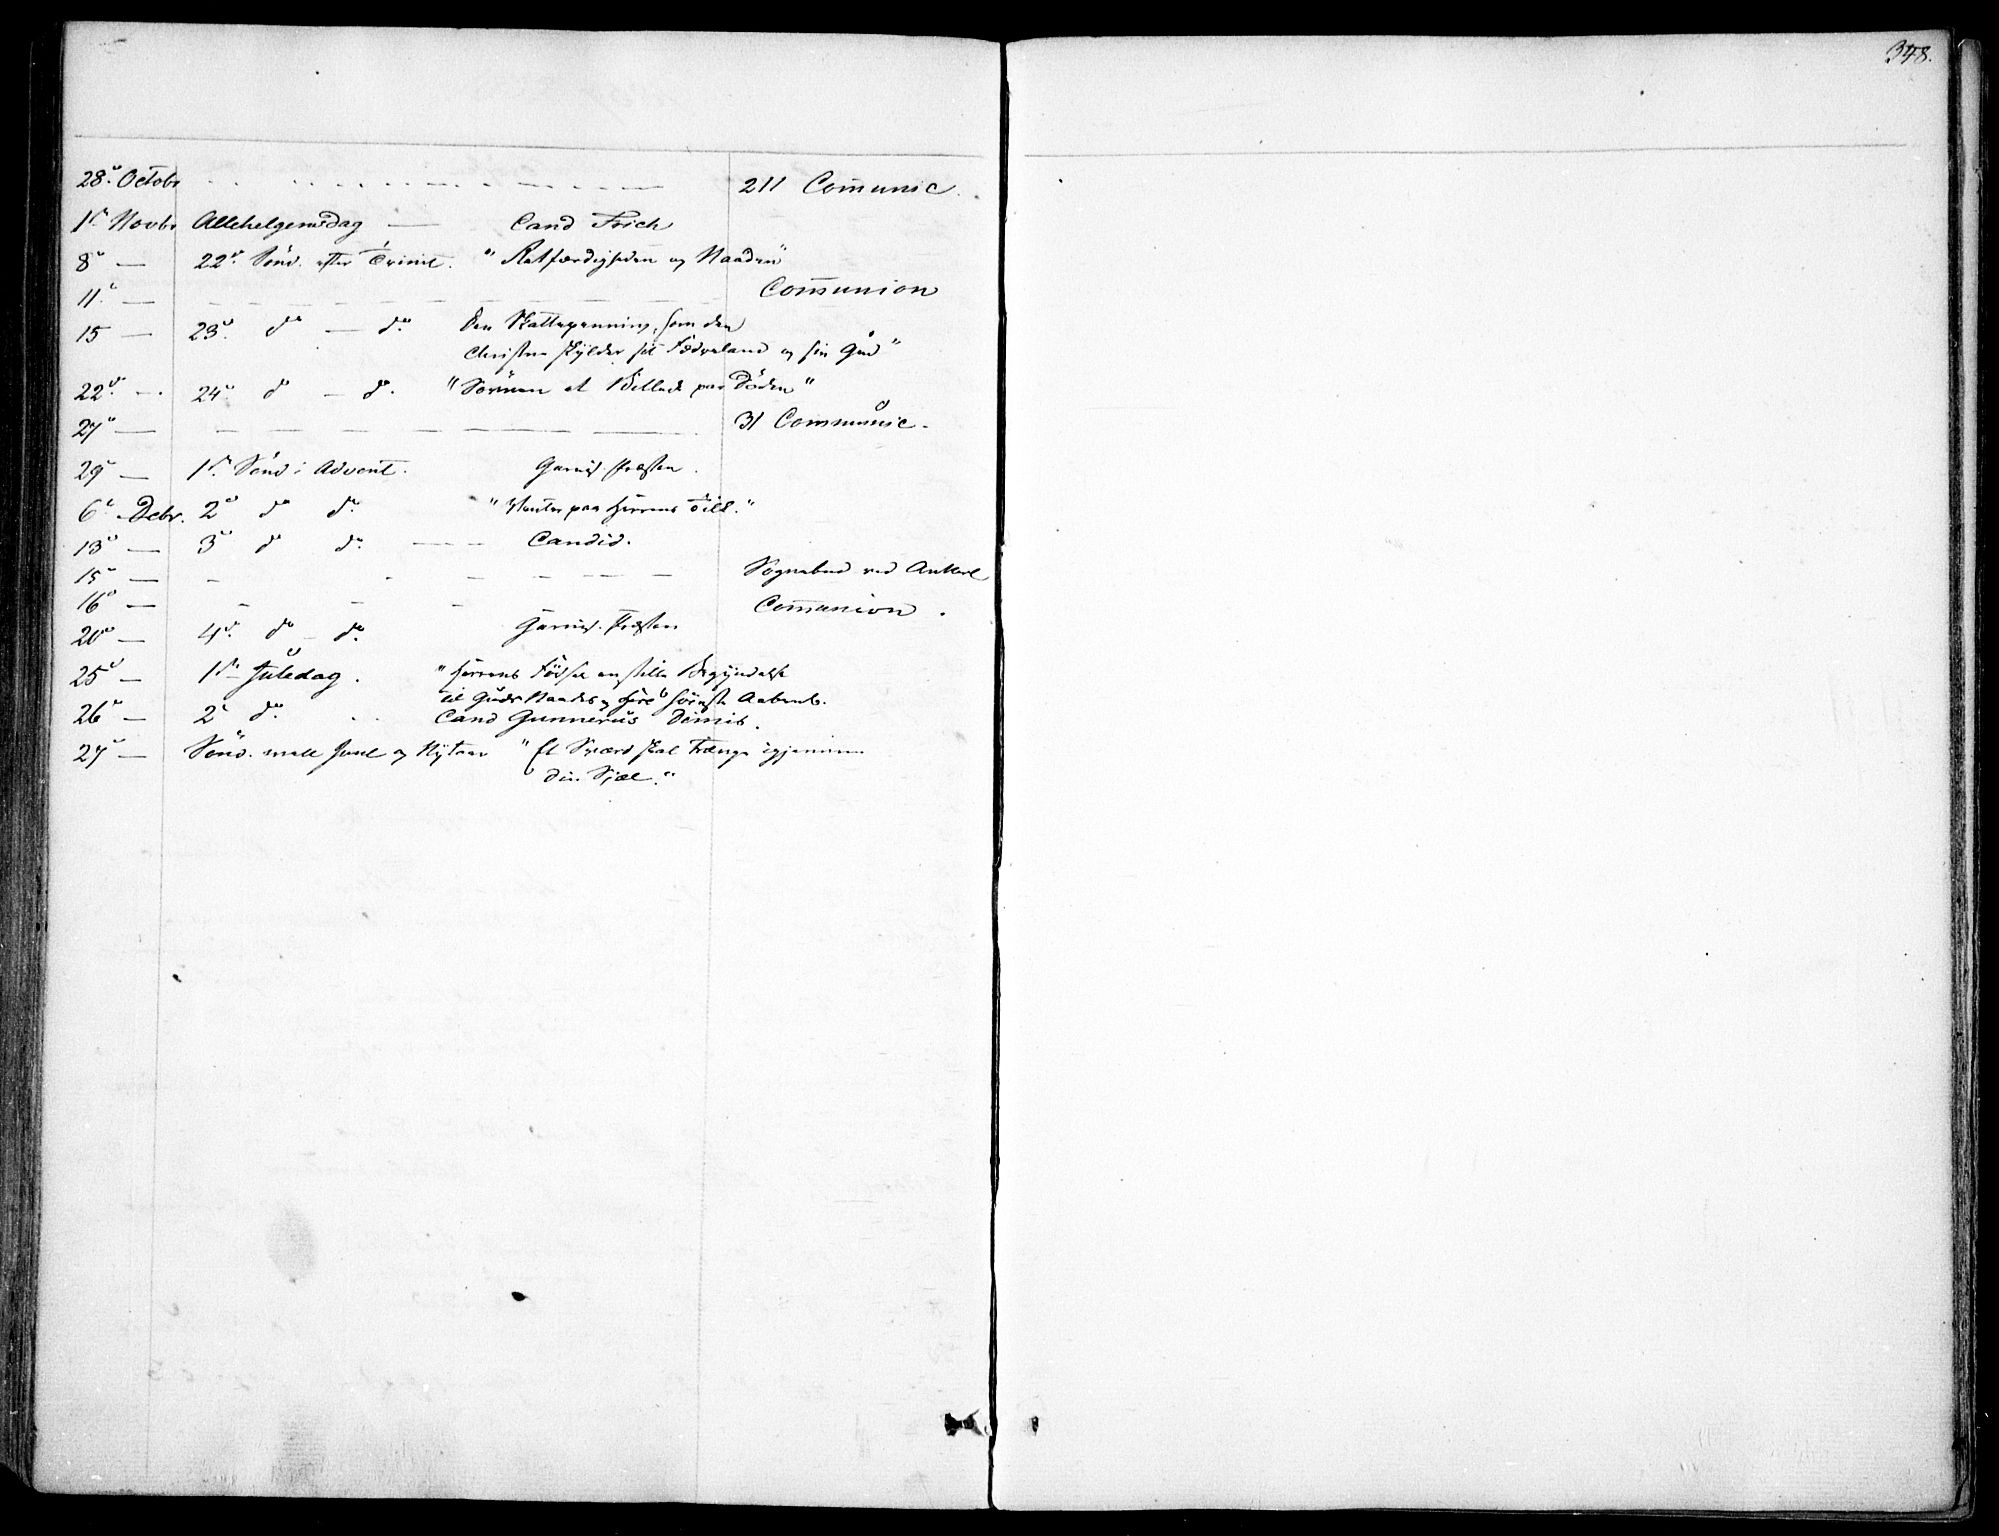 348.
28de Octobr - - - - - - 211 Com̅unic.
1ste Novbr Allehelgensdag — Cand Frich
8de — 22de Sønd. efter Trinit. "Retfærdigheden og Naaden"
11te — — — — — — Com̅union
15 — 23de do — do. Den Skattepenning, som den
Christne skylder sit Fædreland og sin Gud"
22de — 24de do — do. "Søvnen et Billede paa Døden"
27de — — — — — — 31 Communic.
29de — 1ste Sønd i Advent. Garnis. Præsten.
6te Debr. 2de do do. "Venter paa Herrens Tid."
13de — 3de do do. — — Candid.
15de — - - - - - - Sognebud ved Ankerl
16de — - - - Com̅union.
20de — 4de do - do. Garnis. Præsten
25de — 1ste Juledag. "Herrens Fødsel en stille Begyndelse
til Guds Naades og
26de — 2de do. - - Cand Gunnerus Dimis.
27de — Sønd. mell Juul og Nytaar "Et Sværd skal trænge igjennem
din Sjæl."